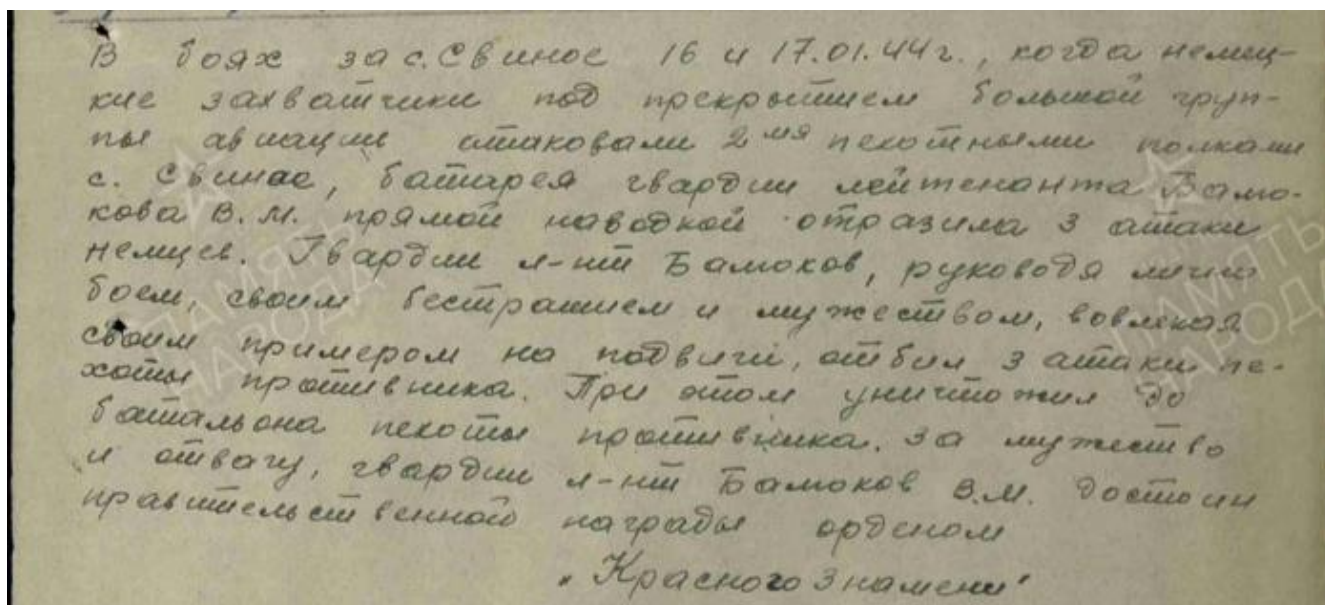 В боях за с. Свиное 16 и 17.01.44г., когда немец-
кие захватчики под прекрытием большой груп-
пы авиации атаковали 2мя пехотными полками
с. Свиное, батарея гвардии лейтенанта Бамо-
кова В.М. прямой наводкой отразила 3 атаки
немцев. Гвардии л-нт Бамоков, руководя лично
боем, своим бестрашием и мужеством, вовлекая
своим примером на подвиги, отбил 3 атаки пе-
хоты противника. При этом уничтожил до
батальона пехоты противника. За мужество
и отвагу, гвардии л-нт Бамоков В.М. достоин
правительственной награды орденом
„Красного Знамени"
ПАМЯТЬ
НАРОДА
ПАМЯТЬ
НАРОДА